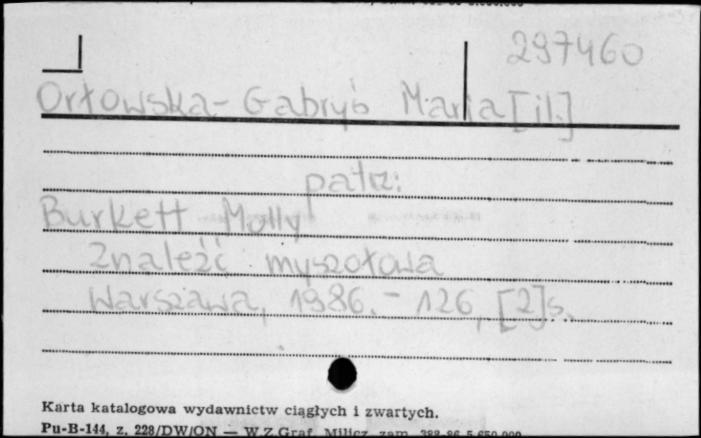 297460
Orłowska-Gabryś Maria [il.]
patrz:
Burkett Molly
Znaleźć myszołowa
Warszawa, 1986. – 126, [2] s.
Karta katalogowa wydawnictw ciągłych i zwartych.
Pu-B-144, z. 228/DW/ON — W.Z.Graf. Milicz zam. 388-86 5.650.000